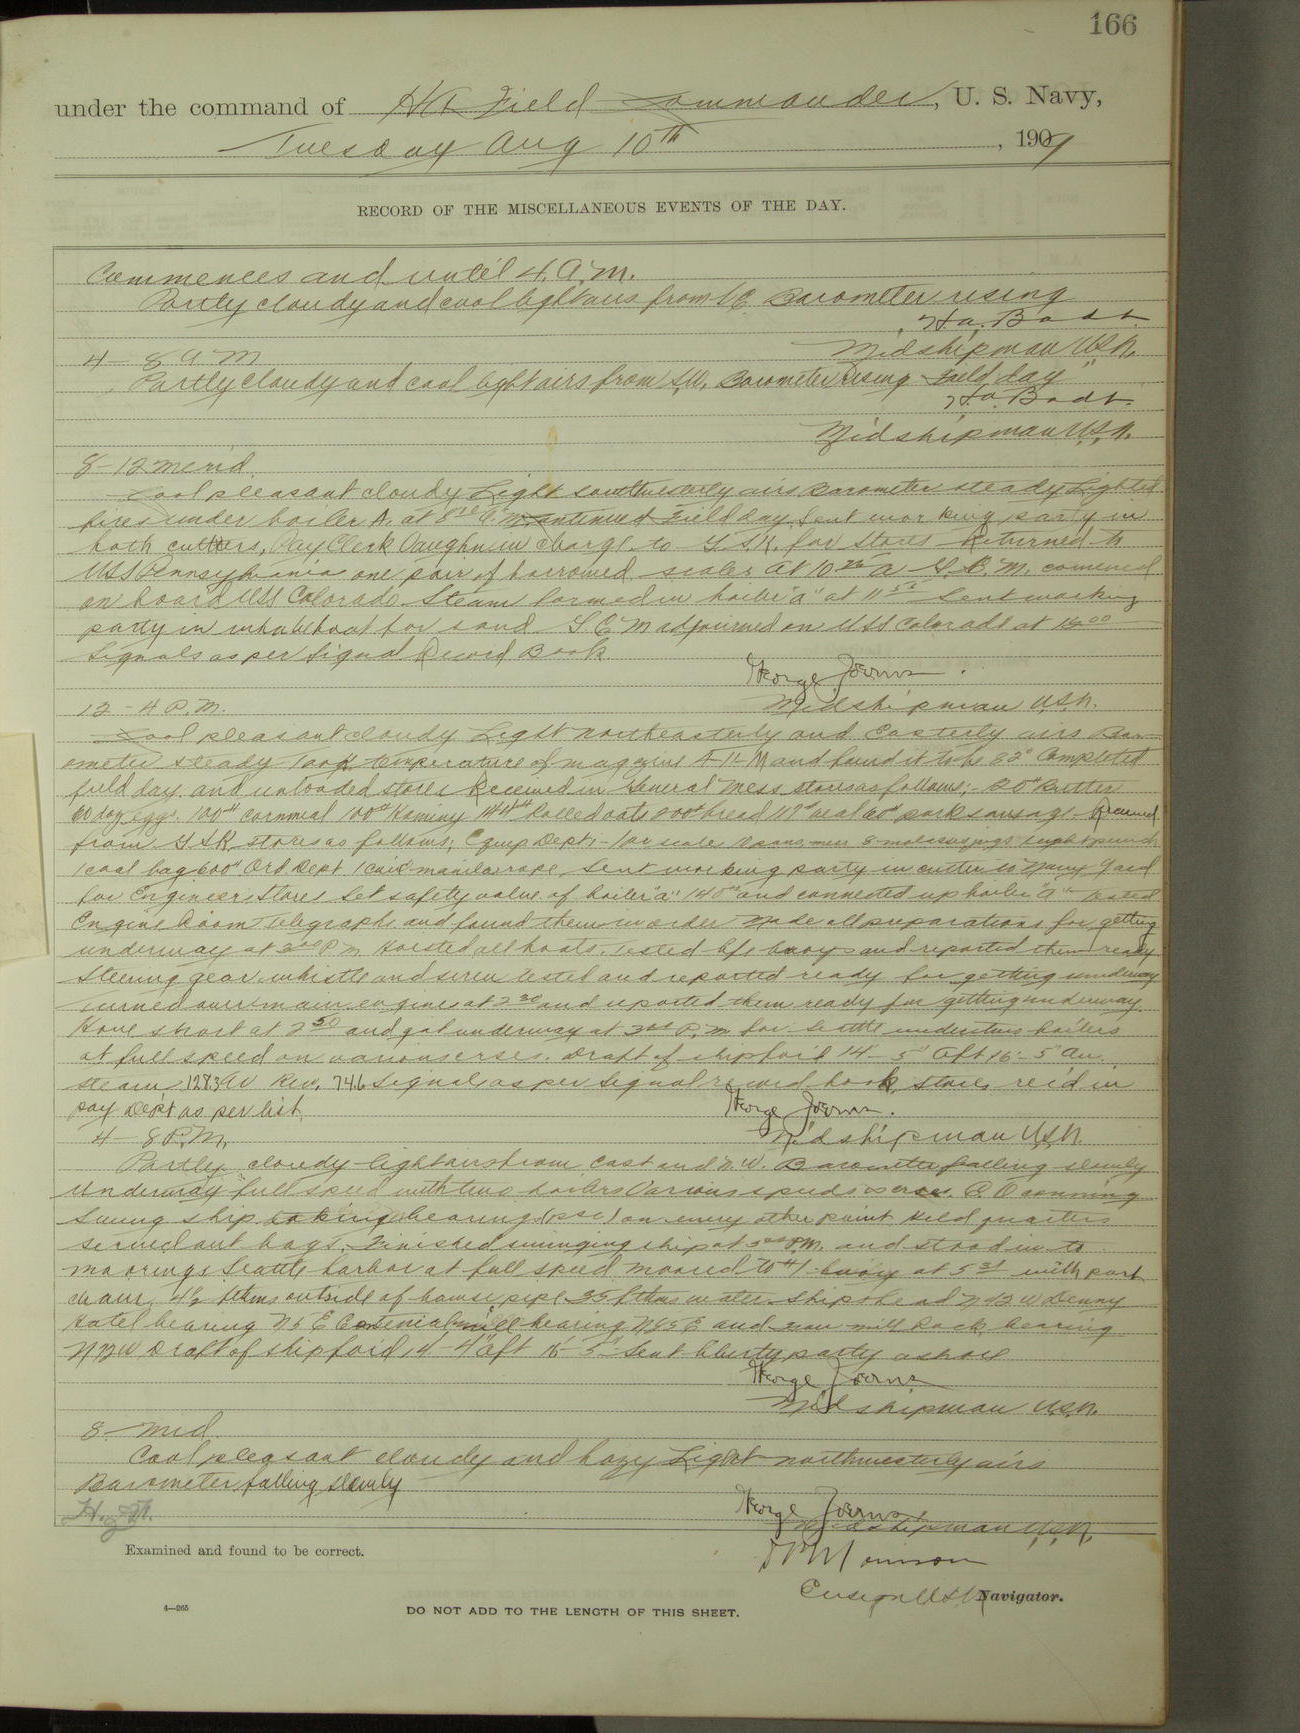 166
under the command of H A Field Commander, U. S. Navy,
Tuesday Aug 10th, 1909
RECORD OF THE MISCELLANEOUS EVENTS OF THE DAY.
Commences and until 4. A.M.
Partly cloudy and cool light airs from Barometer rising
H.A. Badt
Midshipman U.S.N.
4 - 8 A M
Partly cloudy and cool light airs from S.W. Barometer rising Field day
H.A. Badt.
Midshipman U.S.N.
8 - 12 Merid.
Cool pleasant cloudy Light southwesterly airs Barometer steady Lighted
fires under boiler A. at Continued Field day. Sent working party in
both cutters, Pay Clerk Vaughn in charge to for stores Returned to
USS Pennsylvania one pair of borrowed scales At 10 convened
on board USS Colorado. Steam formed in boiler "a" at 11 Sent working
party in whaleboat for sand S C M adjourned on USS Colorado at
Signals as per Signal Record Book
George Joerns.
Midshipman U.S.N.
12 - 4 P.M.
Cool pleasant cloudy Light northeasterly and Easterly airs Bar-
ometer steady Took temperature of magazine and found it to be 82° Completed
field day and unloaded stores Received in General Mess stores as follows; Butter
60 doz eggs. 100# cornmeal 100# Hominy Rolled oats 200# bread veal pork sausage. Received
from stores as follows; Equip Dept;
1 coal bag 600# Ord Dept 1 coil manila rope Sent working party in cutter to Navy Yard
for Engineers Stores Set safety valve of boiler "a" and connected up boiler "a" Tested
Engine Room Telegraphs and found them in order Made all preparations for getting
underway at 3 P.M. Hoisted all boats. Tested life buoys and reported them ready
Steering gear, whistle and siren tested and reported ready for getting underway
Turned over main engines at 2 30 and reported them ready for getting underway.
Hove short at 2 50 and got underway at P.M. for Seattle under two boilers
at full speed on various courses. Draft of ship for'd 14' - 5" Aft 16' - 5" Av.
steam 128.3 Av Rev. 74.6 Signals as per Signal record book, stores rec'd in
pay Dept as per list.
George Joerns.
4 - 8 P.M.
Midshipman U.S.N.
Partly cloudy light airs from East and N.W. Barometer falling slowly
Underway full speed with two boilers Various speeds
Swung ship taking bearing (psc) on every other point Held quarters
served out bags. Finished swinging ship at P.M. and stood in to
moorings Seattle harbor at full speed moored to #1 buoy at 5 with port
chain, 4½ fthms outside of hawse pipe 35 fthms water. Ship's head Denny
Hotel bearing N 6 E Centenial mill bearing and saw mill bearing
Draft of ship for'd 14' - 4" aft 16' - 5" Sent liberty party ashore
George Joerns
Midshipman U.S.N.
8 - Mid.
Cool pleasant cloudy and hazy Light northwesterly airs
Barometer falling slowly
George Joerns,
Midshipman U.S.N.
Examined and found to be correct.
Ensign U.S.N. Navigator.
4—265
DO NOT ADD TO THE LENGTH OF THIS SHEET.